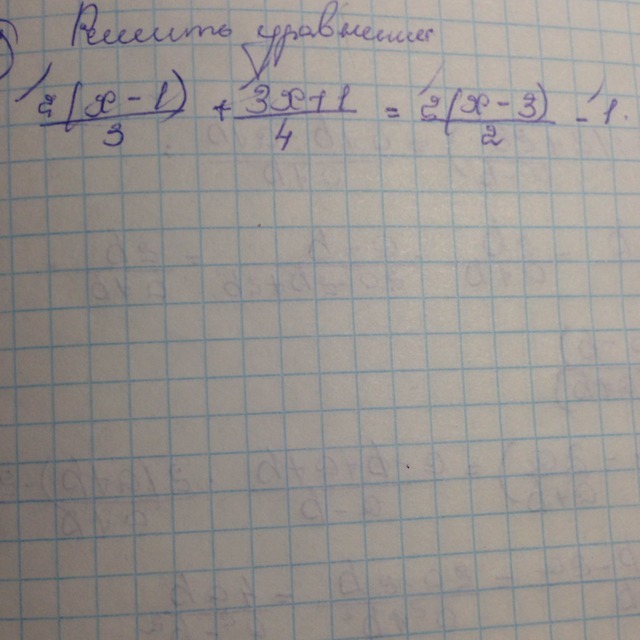 Решить уравнения
2(x - 1)/3 + 3x+1/4 = 2(x - 3)/2 - 1.